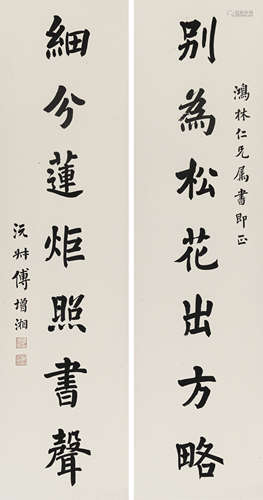 鴻林仁兄属書即正
别為松花出方略
細分蓮炬照書聲
沅叔傅增湘